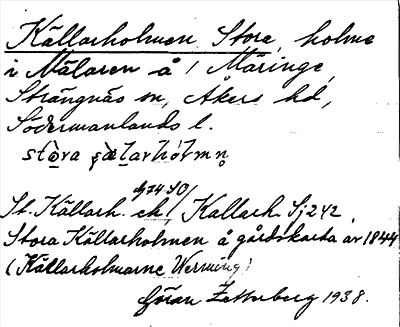 Källarholmen, Stora, holme
i Mälaren å / Märinge,
Strängnäs sn, Åkers hd,
Södermanlands l.
stòra
St. Källarh. ek / Kallarh. Sj 242,
Stora Källarholmen å gårdskarta av 1844
(Källarholmarne Werming)
Göran Zetterberg 1938.